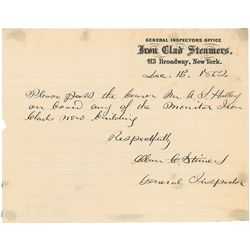 GENERAL INSPECTORS OFFICE
Iron Clad Steamers,
413 Broadway, New York.
Dec. 16, 1862
Please pass the bearer Mr. A. L. Holley
on board any of the Monitor Iron
Clad now building
Respectfully
Alban C. Stimers
General Inspector